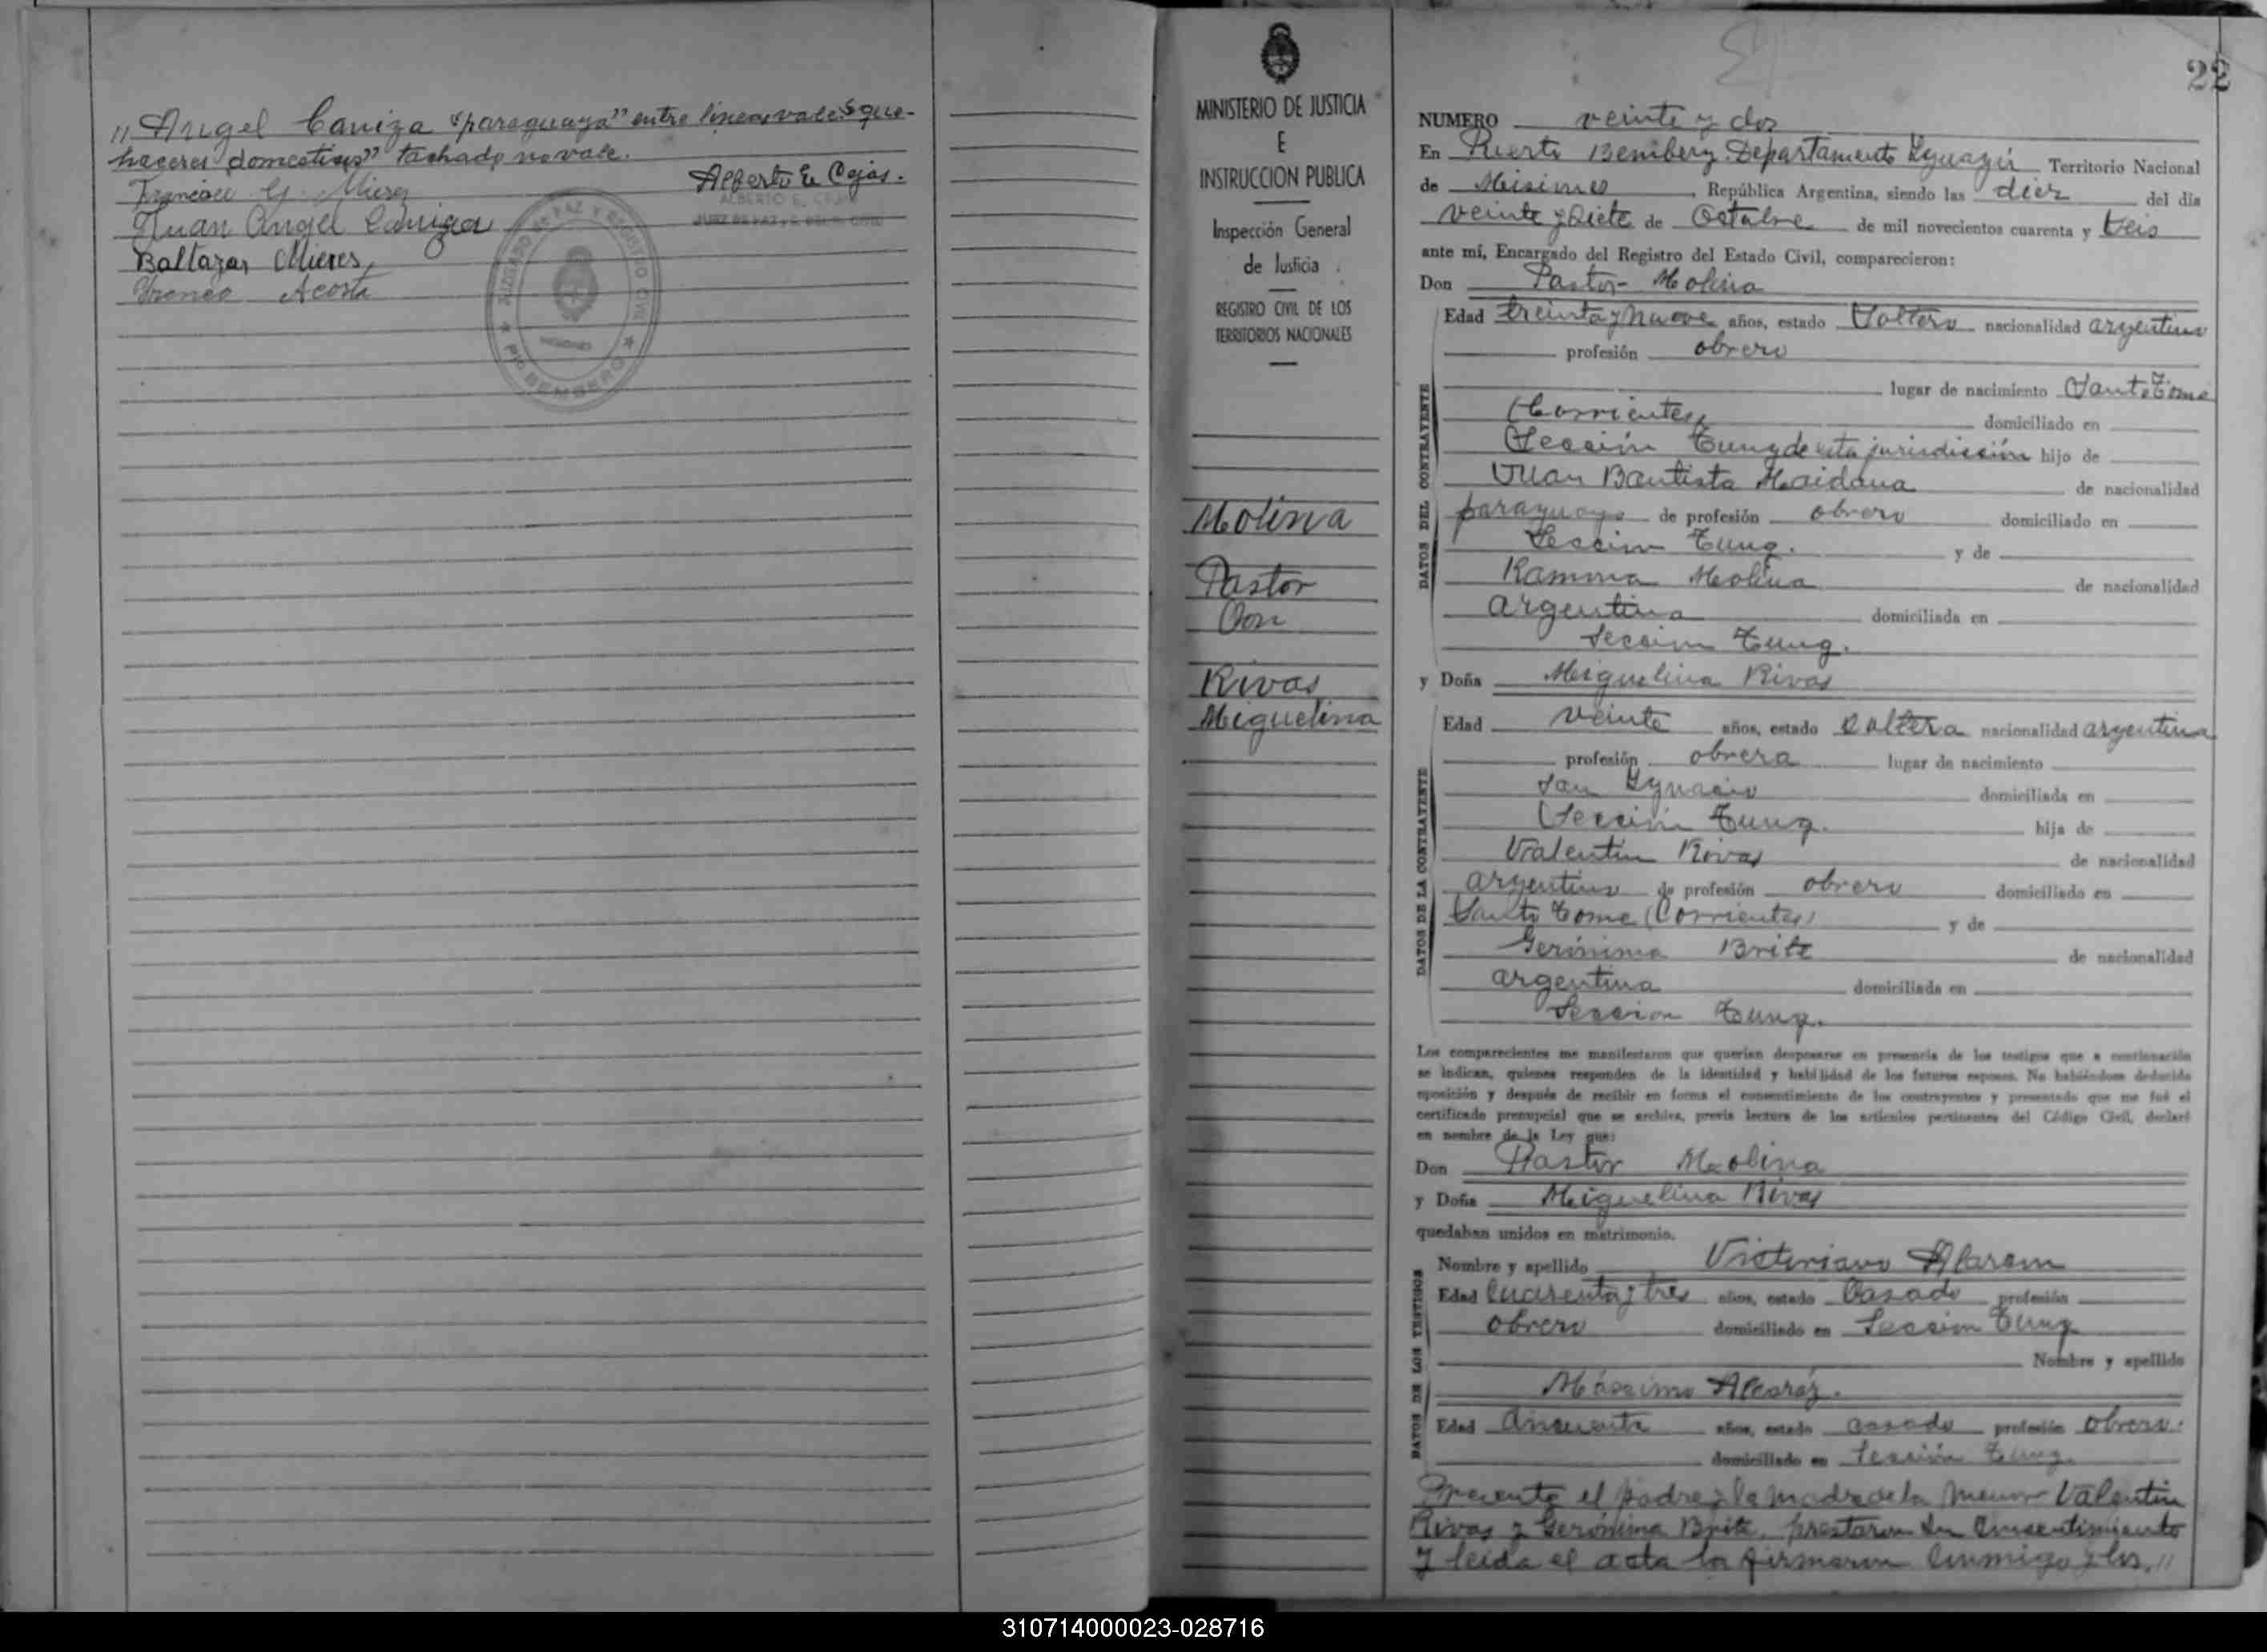 " Angel Caniza "paraguaya" entre lineas vale "que-
haceres domesticos" tachado no vale.
Alberto E. Cojas.
ALBERTO E.
JUEZ DE PAZ
Juan Angel Caniza
Baltazar Mieres
Acosta
JUZGADO DE PAZ Y REGISTRO CIVIL
MISIONES
PTO BEMBERG
MINISTERIO DE JUSTICIA
E
INSTRUCCION PUBLICA
Inspección General
de Justicia
REGISTRO CIVIL DE LOS
TERRITORIOS NACIONALES
Molina
Pastor
Con
Rivas
Miguelina
22
NUMERO veinte y dos
En Puerto Bemberg Departamento Yguazú Territorio Nacional
de Misiones República Argentina, siendo las diez del día
veinte y siete de Octubre de mil novecientos cuarenta y seis
ante mí, Encargado del Registro del Estado Civil, comparecieron:
Don Pastor Molina
Edad treinta y nueve años, estado soltero nacionalidad argentino
profesión obrero
lugar de nacimiento Santo Tomé
(Corrientes) domiciliado en
Sección Tung de esta jurisdicción hijo de
Juan Bautista Maidana de nacionalidad
paraguayo de profesión obrero domiciliado en
Sección Tung. y de
Ramona Molina de nacionalidad
argentina domiciliada en
Sección Tung.
y Doña Miguelina Rivas
Edad veinte años, estado soltera nacionalidad argentina
profesión obrera lugar de nacimiento
San Ygnacio domiciliada en
Sección Tung. hija de
Valentin Rivas de nacionalidad
argentino de profesión obrero domiciliado en
Santo Tome (Corrientes) y de
Gerónima Brite de nacionalidad
argentina domiciliada en
Sección Tung.
DATOS DEL CONTRAYENTE
DATOS DE LA CONTRAYENTE
Los comparecientes me manifestaron que querían desposarse en presencia de los testigos que a continuación
se indican, quienes responden de la identidad y habilidad de los futuros esposos. No habiéndose deducido
oposición y después de recibir en forma el consentimiento de los contrayentes y presentado que me fué el
certificado prenupcial que se archiva, previa lectura de los artículos pertinentes del Código Civil, declaré
en nombre de la Ley que:
Don Pastor Molina
y Doña Miguelina Rivas
quedaban unidos en matrimonio.
Nombre y apellido Victoriano Alarcon
Edad cuarenta y tres años, estado casado profesión
obrero domiciliado en Sección Tung
Nombre y apellido
Máximo Alcaráz.
Edad cincuenta años, estado casado profesión obrero.
domiciliado en Sección Tung.
DATOS DE LOS TESTIGOS
Presente el padre y la madre de la menor Valentin
Rivas y Gerónima Brite, prestaron su consentimiento
y leida el acta la firmaron conmigo y los, "
310714000023-028716